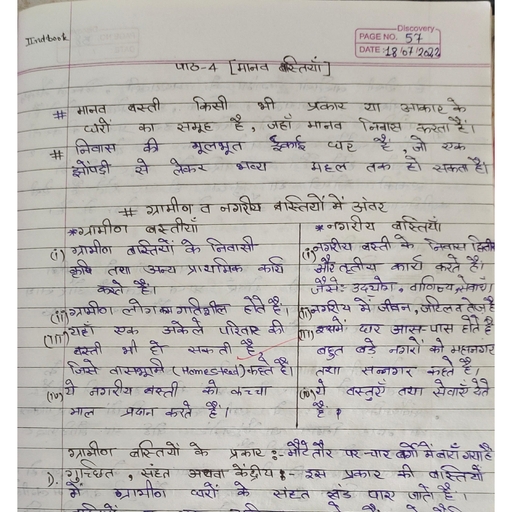 IInd book
Discovery
PAGE NO. 57
DATE: 18/07/2022
पाठ-4 [मानव बस्तियाँ]
# मानव बस्ती किसी भी प्रकार या आकार के
घरों का समूह है, जहाँ मानव निवास करता है।
# निवास की मूलभूत ईकाई घर है, जो एक
झोंपडी से लेकर भव्य महल तक हो सकता है।
# ग्रामीण व नगरीय बस्तियों में अंतर
*ग्रामीण बस्तीयाँ
(i) ग्रामीण बस्तियों के निवासी
कृषि तथा अन्य प्राथमिक कार्य
करते है।
(ii) ग्रामीण लोग कम गतिशील होते है।
(iii) यहाँ एक अकेले परिवार की
बस्ती भी हो सकती है
जिसे वासभूमि (Homestead) कहते है।
(iv) ये नगरीय बस्ती को कच्चा
माल प्रदान करते है।
* नगरीय बस्तियाँ
(i) नगरीय बस्ती के निवास द्वितीय
और तृतीय कार्य करते है।
जैसे: उदयोग, वाणिज्य, सेवाएँ।
(ii) नगरीय में जीवन, जटिल व तेज है
(iii) इसमें घर आस-पास होते है
बहुत बडे नगरों को महानगर
तथा सन्नगर कहते है।
(iv) ये वस्तुएँ तथा सेवाएँ देते
है।
ग्रामीण बस्तियों के प्रकार :- मौटे तौर पर चार वर्गो में बाँटा गया है
1). गुच्छित, संहत अथवा केंद्रीय :- इस प्रकार की बस्तियों
में ग्रामीण घरों के संहत खंड पाए जाते है।